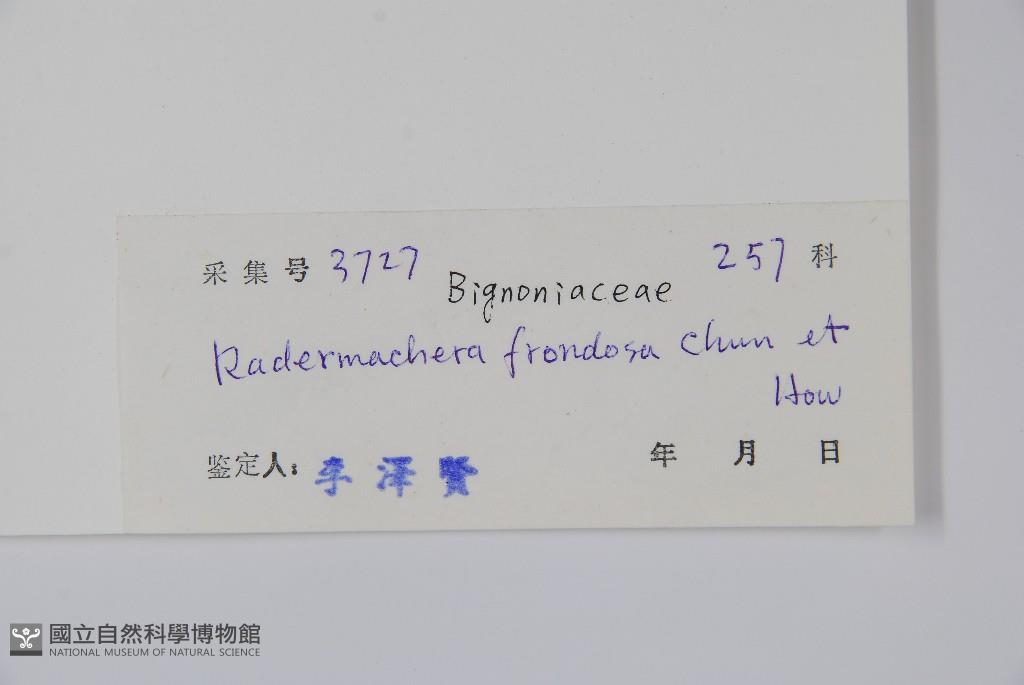 采集号 3727 257 科
Bignoniaceae
Radermachera frondosa Chun et
How
鉴定人: 李泽賢 年 月 日
國立自然科學博物館
NATIONAL MUSEUM OF NATURAL SCIENCE